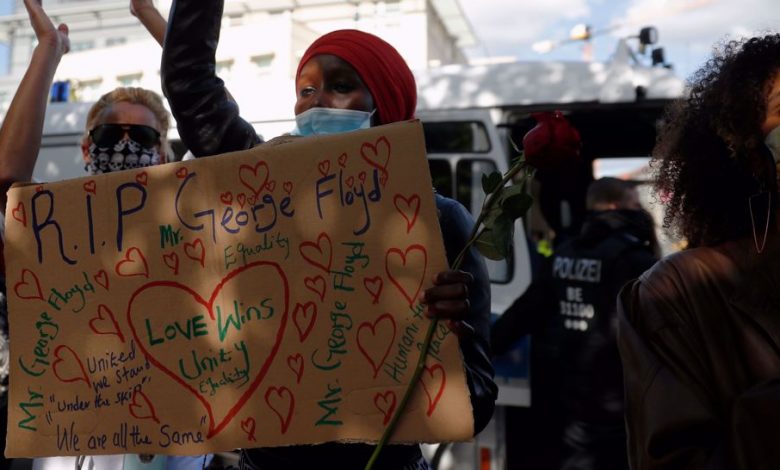 R.I.P George Floyd
Mr.
Equality
Mr. George Floyd
LOVE Wins
Unity
Equality
Mr. George Floyd
Mr. George Floyd
Humani
United
we stand
"Under the skin"
We are all the Same"
POLIZEI
BE
31100